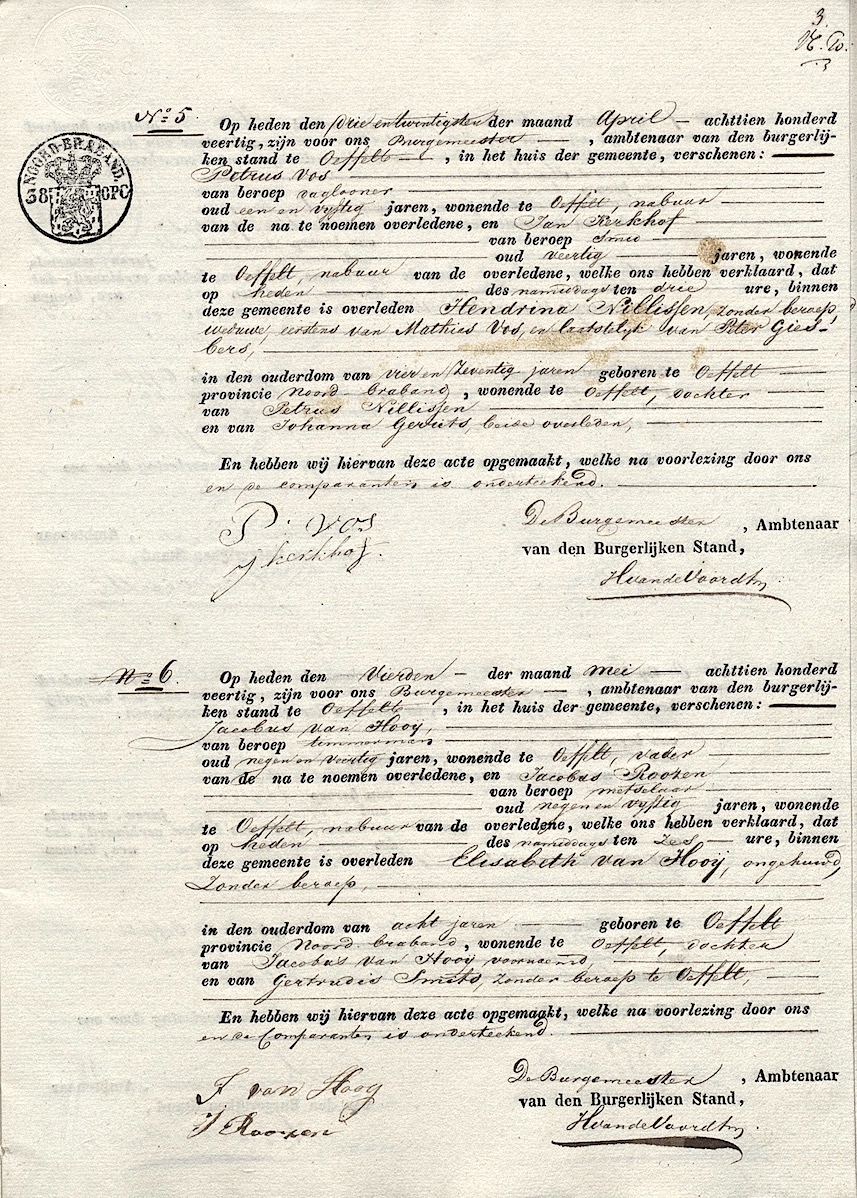 3.
No 5.
NOORD-BRABAND.
38 OPC
Op heden den drie entwintigsten der maand April achttien honderd
veertig, zijn voor ons Burgemeester, ambtenaar van den burgerlij-
ken stand te Oeffelt, in het huis der gemeente, verschenen:
Petrus Vos
van beroep daglooner
oud een en vijftig jaren, wonende te Oeffelt, nabuur
van de na te noemen overledene, en Jan Kerkhof
van beroep Smid
oud veertig jaren, wonende
te Oeffelt, nabuur van de overledene, welke ons hebben verklaard, dat
op heden des namiddags ten drie ure, binnen
deze gemeente is overleden Hendrina Nillissen, zonder beroep,
weduwe, eerstens van Mathies Vos, en laatstelijk van Peter Gies-
bers,
in den ouderdom van vier en Zeventig jaren geboren te Oeffelt
provincie Noord-braband, wonende te Oeffelt, dochter
van Petrus Nillissen
en van Johanna Geruts, beide overleden,
En hebben wij hiervan deze acte opgemaakt, welke na voorlezing door ons
en de comparanten is onderteekend.
P. Vos
J kerkhof.
De Burgemeester, Ambtenaar
van den Burgerlijken Stand,
HvandeVoordt
No 6.
Op heden den Vierden der maand Mei achttien honderd
veertig, zijn voor ons Burgemeester, ambtenaar van den burgerlij-
ken stand te Oeffelt, in het huis der gemeente, verschenen:
Jacobus van Hooij,
van beroep timmerman
oud negen en veertig jaren, wonende te Oeffelt, vader
van de na te noemen overledene, en Jacobus Roozen
van beroep metselaar
oud negen en vijftig jaren, wonende
te Oeffelt, nabuur van de overledene, welke ons hebben verklaard, dat
op heden des namiddags ten Zes ure, binnen
deze gemeente is overleden Elisabeth van Hooij, ongehuwd,
Zonder beroep,
in den ouderdom van acht jaren geboren te Oeffelt
provincie Noord braband, wonende te Oeffelt, dochter
van Jacobus van Hooy voornaemd,
en van Gertrudis Smits, zonder beroep te Oeffelt,
En hebben wij hiervan deze acte opgemaakt, welke na voorlezing door ons
en de Comparanten is onderteekend.
J van Hooy
J Roozen
De Burgemeester, Ambtenaar
van den Burgerlijken Stand,
HvandeVoordt